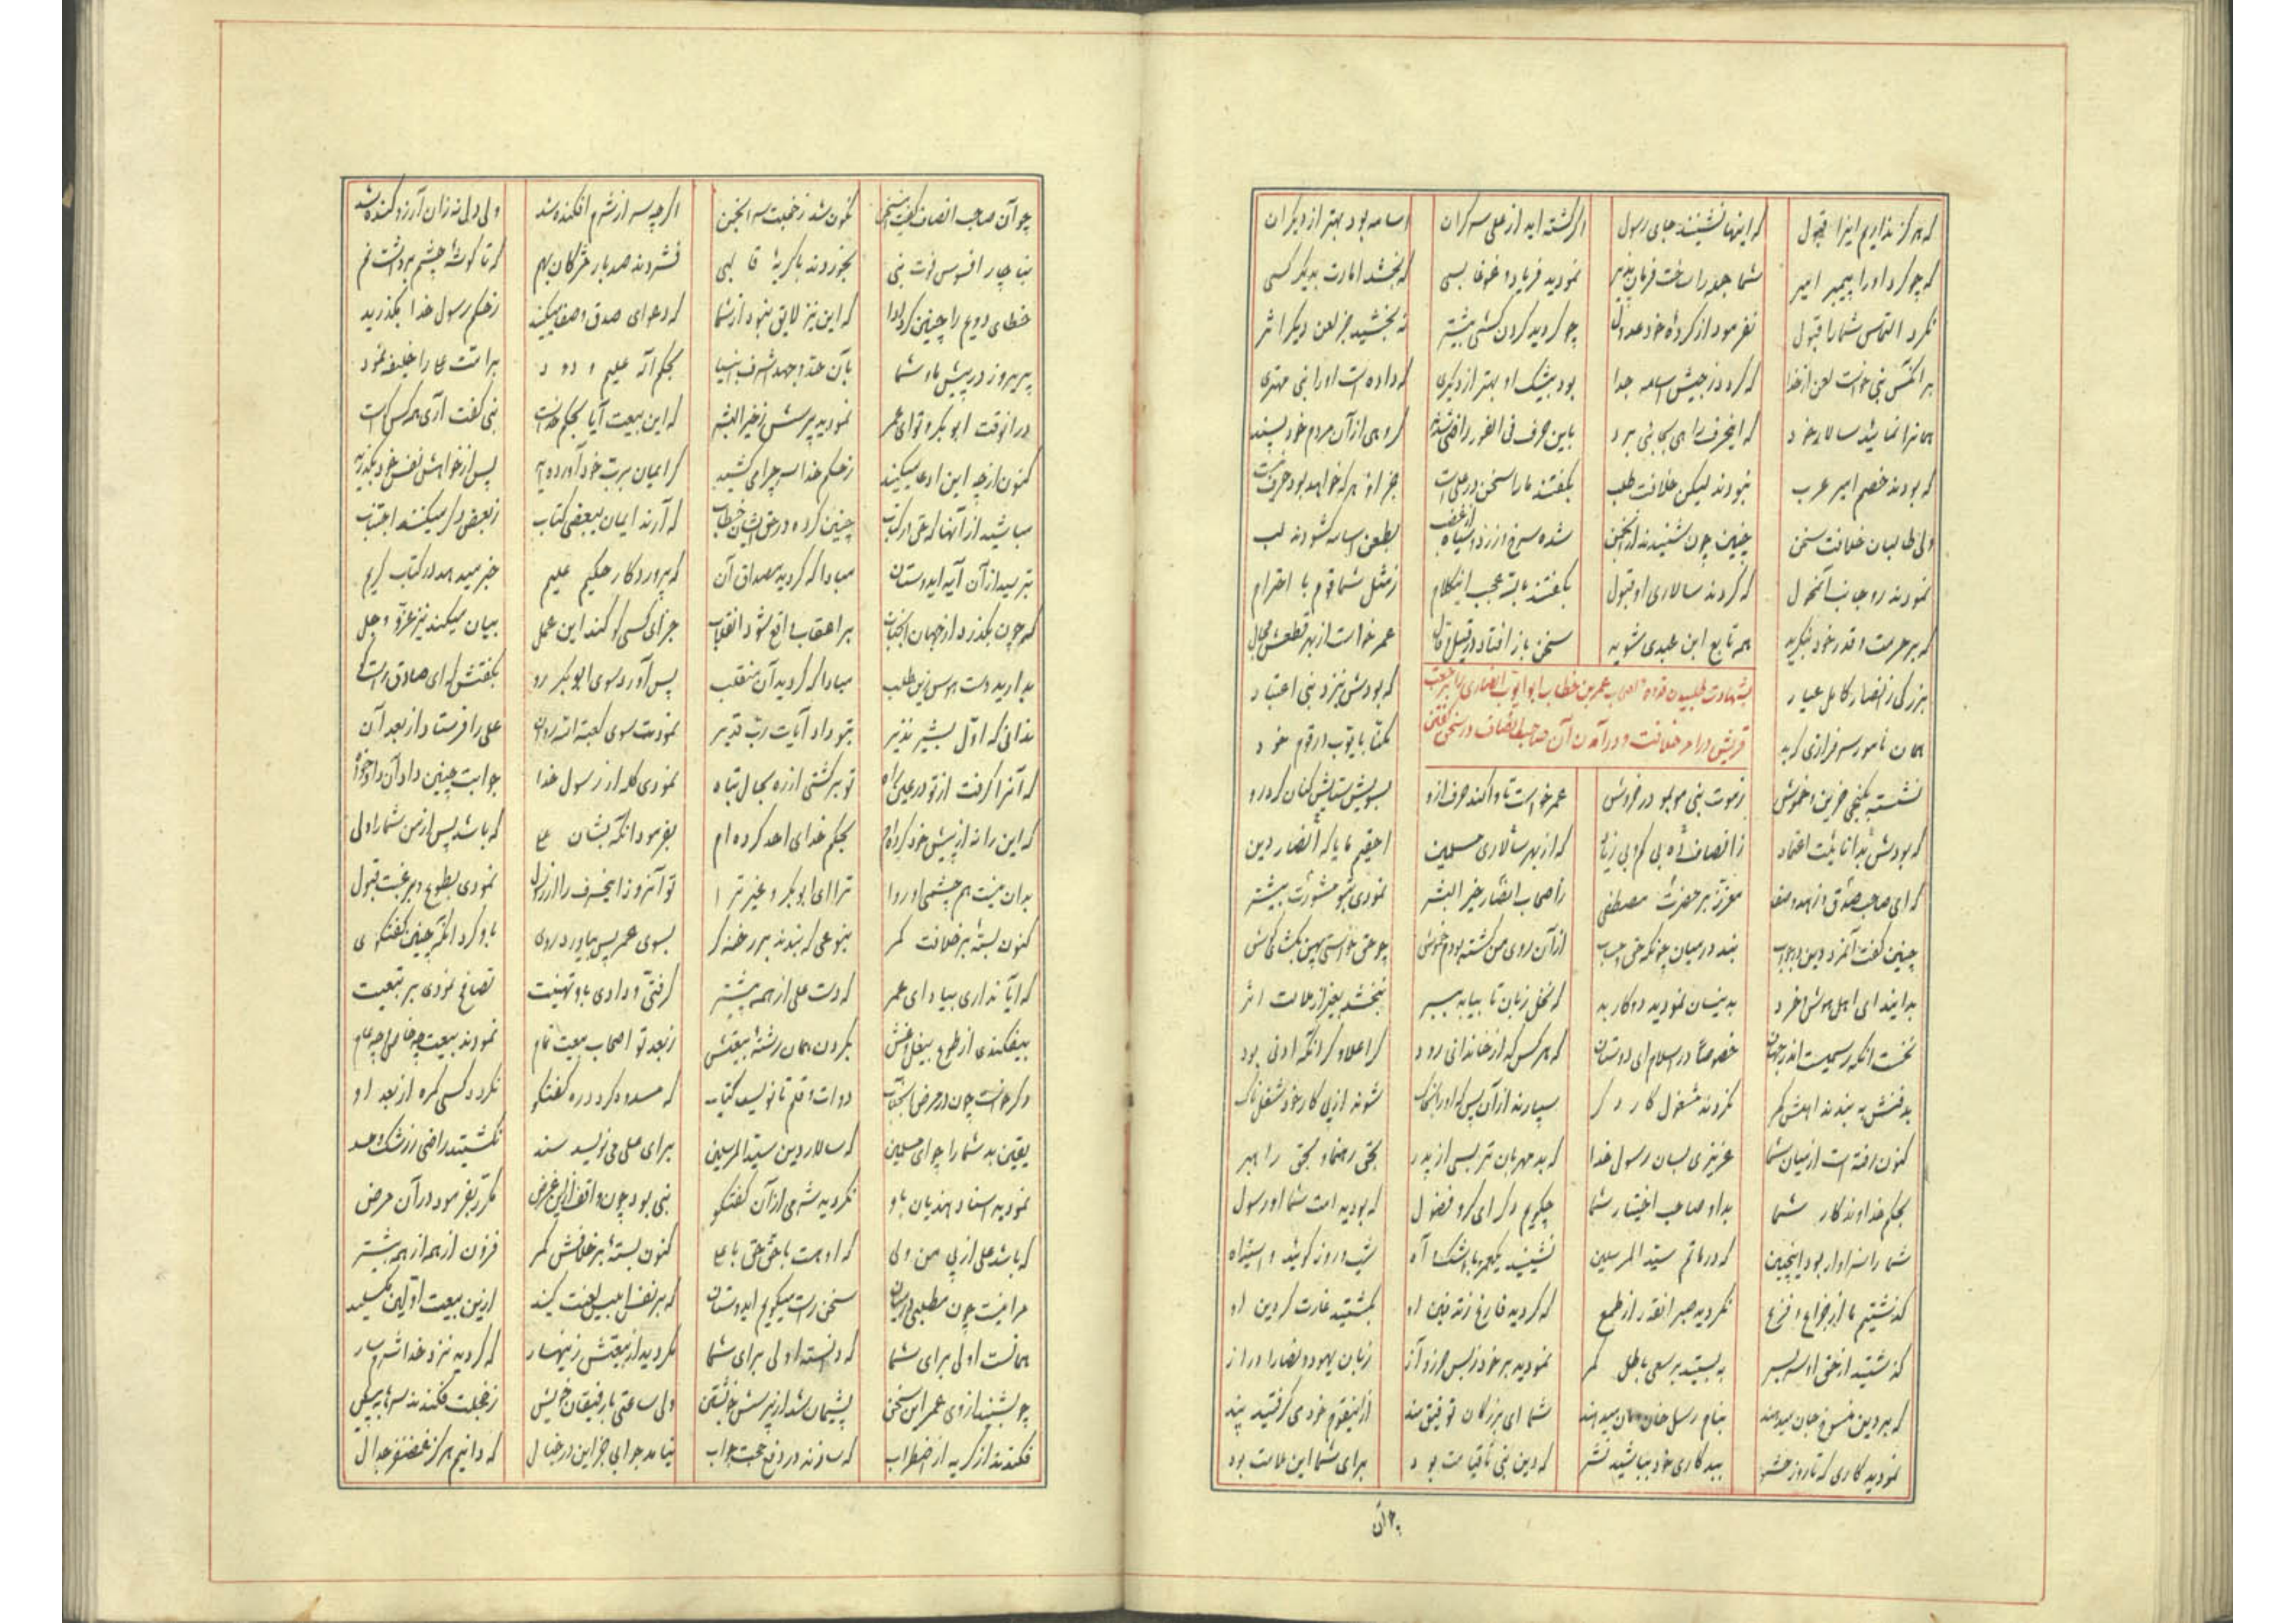 که هرگز نداریم اینرا قبول که اینها نشینند جای رسول اگر گشته‌اید از علی سرگران اسامه بود بهتر از دیگران
که چو کرد او را پیمبر امیر شما جمله را ساخت فرمان‌پذیر نمودید فریاد و غوغا بسی که بخشد امارت بدیگر کسی
نکرد التماس شما را قبول نفرمود از کردهٔ خود عدول چو کردید گردن‌کشی بیشتر نه بخشید جز لعن دیگر اثر
برآنکس نبی خواست لعن از خدا که گردد ز جیش اسامه جدا بود بیشک او بهتر از دیگری که داده است او را نبی مهتری
همانرا نمائید سالار خود که اینحرف راهی بجائی برد باین حرف فی الفور راضی شدند گروهی از آن مردم خود پسند
که بودند خصم امیر عرب نبودند لیکن خلافت طلب بگفتند ما را سخن در علی است جز او هر که خواهد بود حرف نیست
ولی طالبان خلافت سخن چنین چون شنیدند از انجمن شده سرخ و زرد و سیاه از غضب بطعن اسامه گشودند لب
نمودند رو جانب آنخول که کردند سالاری او قبول بگفتند با تعجب اینکلام ز مثل شما قوم با احترام
که بر حرمت و قدر خود ننگرید همه تابع ابن عبدی شوید سخن باز افتاد در قیل و قال عمر خواست از بهر قطعش مجال
بزرگی ز انصار کامل عیار که بودش بنزد نبی اعتبار
بشهادت طلبیدن عمر بن خطاب ابوایوب انصاری را بر حقیت
همان نامور سرفرازی که بد مکنا بایوب در قوم خود
قریش در امر خلافت و در آمدن آن صاحب انصاف در سخن گفتن
نشسته بکنجی حزین و خموش ز موت نبی مو بمو در خروش عمر خواست تا واکند حرف ازو بسویش ستایش کنان کرد رو
که بودش بدانائیت اعتماد که از بهر سالاری مسلمین احقیم ما یا که انصار دین
که ای صاحب صدق و زهد و صفا معزز بر حضرت مصطفی ز اصحاب انصار خیر البشر نمودی بتو مشورت بیشتر
چنین گفت آنمرد دین در جواب از آن روی من گشته بودم خموش چو حق خواستی پس بمن بگشای گوش
بدانید ای اهل هوش و خرد بدینسان نمودید دو کار بد ببخشد بغیر از علامت اثر
نخست آنکه رسمیست اندر جهان خصوصاً در اسلام ای دوستان که هر کس که از خاندانی رود گر اعلا و گر آنکه ادنی بود
بدفنش ببندند اهلش کمر نگردند مشغول کار دگر سپارند از آن پس که او را بخاک شوند از پی کار خود
کنون رفته است از میان شما عزیزی بسان رسول خدا که بد مهربان‌تر بسی از پدر بحق رهنما و بحق راهبر
بحکم خداوندگار شما بد او صاحب اختیار شما چگویم دگر ای گروه فضول که بودید امت شما او رسول
شما را سزاوار بود اینچنین که در ماتم سید المرسلین نشینید یکعمر با اشک و آه شب و روز گوئید واسیداه
گذشتیم ما از جزاع و فزع نکردید صبر آنقدر از طمع که گردید فارغ ز تدفین او بگشتید غارتگر دین او
گذشتید از حق او سربسر ببستید بر سعی باطل کمر نمودید بر خود ز بس حرص و آز زبان یهود و نصارا دراز
که بر دین منسوخ جان میدهند بنام رسل خان و مان میدهند شما ای بزرگان توفیق‌مند از اینقوم خود می‌گرفتید پند
نمودید کاری که تا روز حشر ببدکاری خود بباشید نشر که دین نبی تا قیامت بود برای شما این علامت بود
چو آن صاحب انصاف گفت این سخن نگون شد ز خجلت سر انجمن اگرچه سر از شرم افکنده شد ولی دل نه زان آرزو کنده شد
بناچار افسوس فوت نبی بخوردند با گریهٔ قالبی فشردند صد بار مژگان بهم که تا گوشهٔ چشم برداشت نم
خطای دویم را چنین کرد ادا که این نیز لایق نبود از شما که دعوای صدق و صفا میکنید ز حکم رسول خدا بگذرید
پریروز در پیش ما و شما بآن جد و جهد اشرف انبیا بحکم اله علیم و دود بر امت علی را خلیفه نمود
در آنوقت ابوبکر و تو ای عمر نمودید پرسش ز خیر البشر که این بیعت آیا بحکم خداست نبی گفت آری
کنون از چه این ادعا میکنید ز حکم خدا سر چرا میکشید گر ایمان برب خود آورده‌اید پس از خواهش نفس خود بگذرید
مباشید از آنها که حق در کتاب چنین کرده در حق ایشان خطاب که آرند ایمان ببعض کتاب ز بعض دگر میکنند اجتناب
بترسید از آن آیه ایدوستان مبادا که گردید مصداق آن که پروردگار حکیم علیم خبر میدهد در کتاب کریم
که چون بگذرد از جهان آنجناب بر اعقاب واقع شود انقلاب جزای کسی کو کند این عمل بیان میکند نیز عز و جل
بدارید دست هوس زین طلب مبادا که گردید آن منقلب پس آورد سوی ابوبکر رو بگفتش که ای صادق راستگو
ندانی که اول بشیر نذیر بتو داد آیات رب قدیر نمودت سوی کعبه علی را فرستاد از بعد آن
که آنرا گرفت از تو در عین راه تو برگشتی از ره بحال تباه نمودی گله از رسول خدا جوابت چنین داد آن
که این را نه از پیش خود کرده‌ام بحکم خدای احد کرده‌ام بفرمود آنگه بشان علی که باشد پس از من شما را ولی
بدان نیست هم چشمی او روا ترا ای ابوبکر و غیر ترا تو آنروز اینحرف را از رسول نمودی بطوع و برغبت قبول
کنون بسته بر خلافت کمر بنوعی که بندند بر رخنه‌گر بسوی عمر پس بیاورد روی باو کرد آنگه چنین گفتگوی
که آیا نداری بیاد ای عمر که دست علی از همه پیشتر گرفتی و دادی باو تهنیت تصافح نمودی بر بیعت
بیفکندی از طوع بیغل و غش بگردن همان رشتهٔ بیعتش ز بعد تو اصحاب بیعت تمام نمودند بیعت چه خاص و چه عام
دگر خواست چون در مرض آنجناب دوات و قلم تا نویسد کتاب که مسدود گردد ره گفتگو نگردد کسی گمره از بعد او
یقین بد شما را چو ای مسلمین که سالار دین سید المرسلین برای علی می‌نویسد سند نگشتید راضی ز رشک و حسد
نمودید اسناد هذیان باو نکردید شرمی از آن گفتگو نبی بود چون واقف از این غرض مکرر بفرمود در آن مرض
که باشد علی از پی من ولی که او هست با حق و حق با علی کنون بسته بر خلافش کمر فزون از همه از همه بیشتر
مرا نیست چون مطلبی در میان سخن راست میگویم ایدوستان که بر نفس ابلیس لعنت کنید ازین بیعت اولین مگسلید
همانست اولی برای شما که دانسته اولی برای شما نگردید از بیعتش زینهار که گردید نزد خدا شرمسار
چو بشنید از وی عمر این سخن پشیمان شد از پرسش خویشتن ولی ساعتی با رفیقان خویش ز خجلت فکندند سرها بپیش
فکندند از گریه از اضطراب که سازند در دفع حجت جواب نیامد جوابی جز این در خیال که دانیم هرگز غضنفر جدال